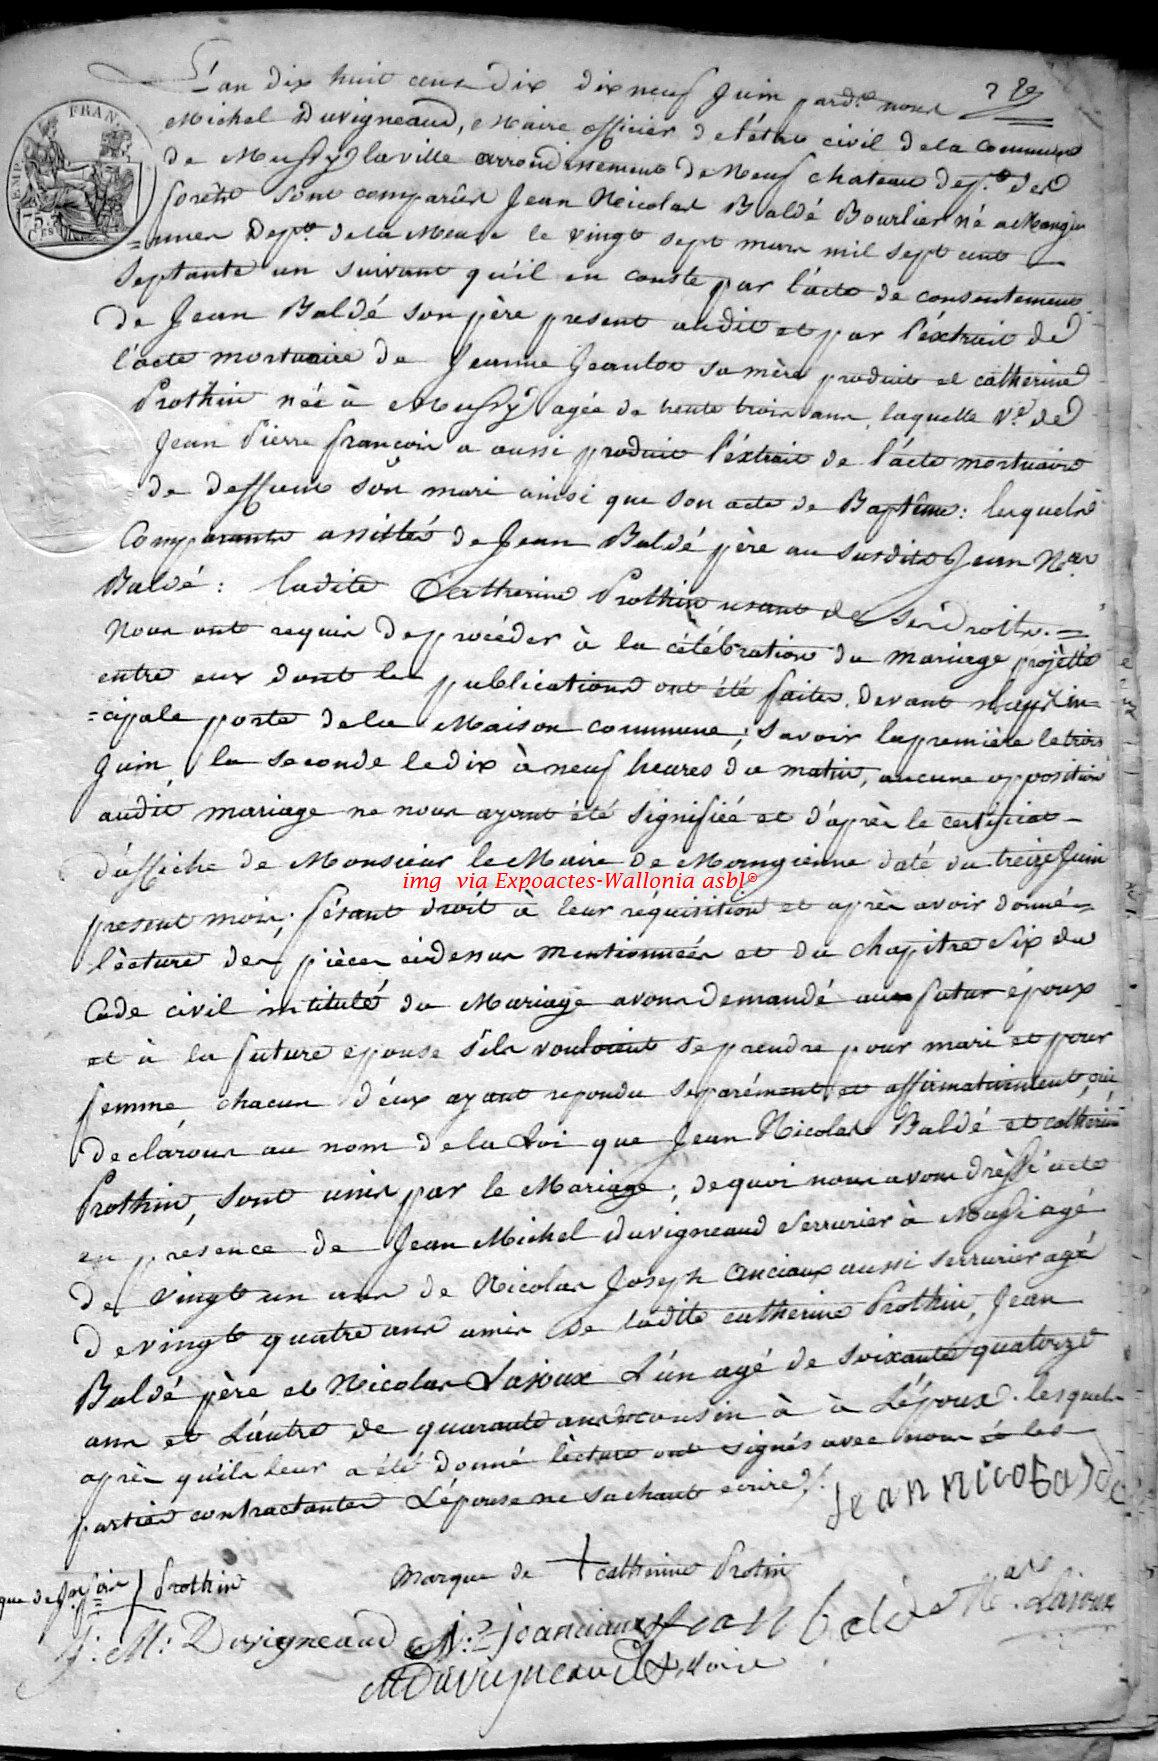 L'an dix huit cent dix dix neuf Juin pard.t nous
Michel Duvigneaud, Maire officier de l'état civil de la Commune
de Mussy la ville arrondissement de Neuf chateau dep.t des
forêts sont comparus Jean Nicolas Baldé Bourlier né a Mangi=
=ennes Dep.t de la Meuse le vingt sept mars mil sept cent
Septante un suivant qu'il en conste par l'acte de consentement
de Jean Baldé son père present audit et par l'éxtrait de
l'acte mortuaire de Jeanne Jeanlot sa mère produit et catherine
Prothin née à Mussy agée de trente trois ans, laquelle V.e de
Jean Pierre françois a aussi produit l'éxtrait de l'acte mortuaire
de deffunt son mari ainsi que son acte de Baptême: lesquels
Comparants assistés de Jean Baldé père au susdit Jean N.as
Baldé: ladite Catherine Prothin usant de ses droits. =
Nous ont requis de procéder à la célébration du mariage projètté
entre eux dont les publications ont été faites devant la prin=
=cipale porte de la Maison commune; savoir la première le trois
Juin, la seconde le dix à neuf heures du matin, aucune opposition
audit mariage ne nous ayant été signifiée et d'après le certificat
d'affiche de Monsieur le Maire de Mangienne daté du treize Juin
present mois; fésant droit à leur réquisition et après avoir donné =
lècture des pièces cidessus mentionnées et du chapitre Six du
Code civil intitulé du Mariage avons demandé au futur époux
et à la future epouse s'ils vouloient se prendre pour mari et pour
femme chacun d'éux ayant repondu separément et affirmativement, oui
declarons au nom de la Loi que Jean Nicolas Baldé et catherine
Prothin, sont unis par le Mariage; de quoi nous avons dréssé acte
en presence de Jean Michel Duvigneaud Serrurier à Mussi agé
de vingt un ans de Nicolas Joseph Anciaux aussi serrurier agé
de vingt quatre ans amis de ladite catherine Prothin, Jean
Baldé père et Nicolas Lajoux L'un agé de soixante quatorze
ans et L'autre de quarante ans cousin à à L'époux. lesquels
après qu'ils leur a été donné lècture ont signés avec nous et les
parties contractantes L'épouse ne sachant ecrire./.
Jean nicobalde
marque de + catherine Protin
que de
Prothin
J: M: Duvigneaud N: J anciaux Jean balde N.as Lajoux
MDuvigneaud Maire
FRAN.
EMP.
75
C.es
img via Expoactes-Wallonia asbl®